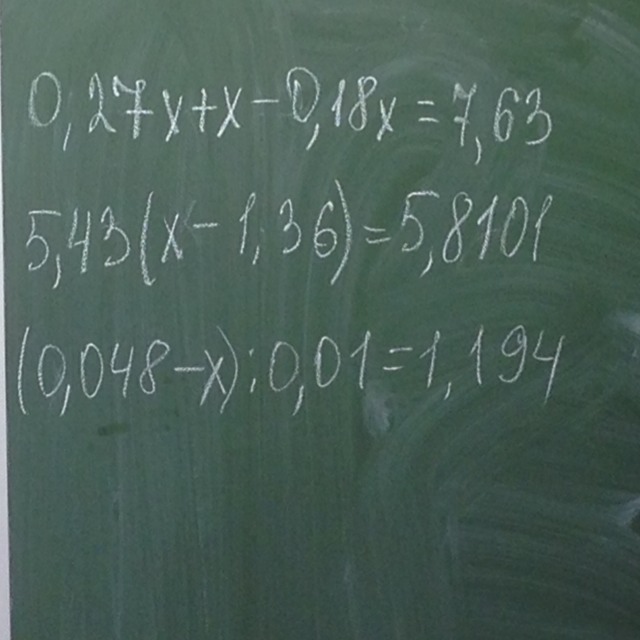 0,27x+x-0,18x=7,63
5,43(x-1,36)=5,8101
(0,048-x):0,01=1,194